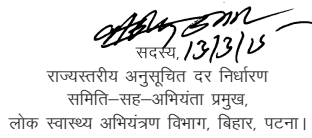 सदस्य, 13/3/15
राज्यस्तरीय अनुसूचित दर निर्धारण
समिति–सह–अभियंता प्रमुख,
लोक स्वास्थ्य अभियंत्रण विभाग, बिहार, पटना।